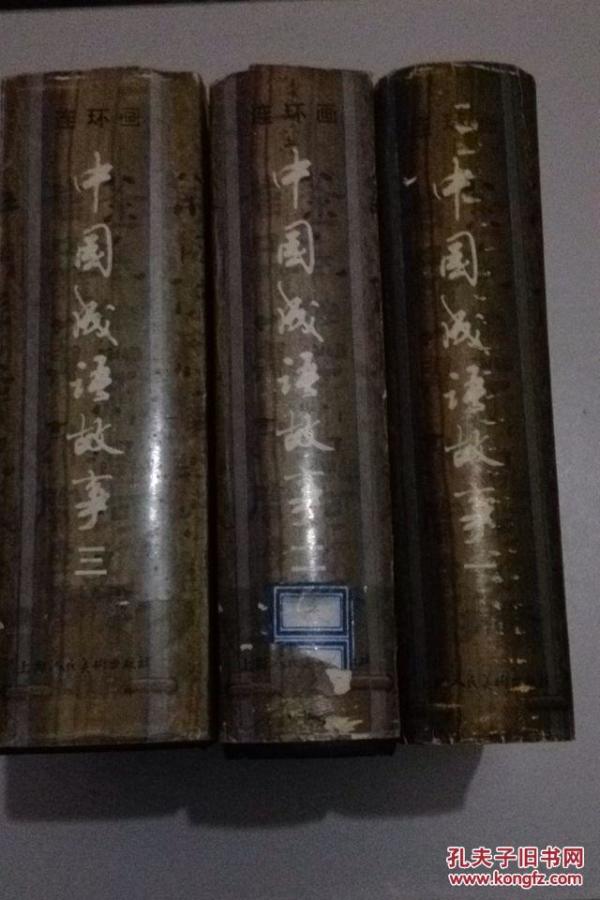 连环画
中国成语故事三
上海人民美術出版社
连环画
中国成语故事二
上海人民美術出版社
中国成语故事一
人民美術出版社
孔夫子旧书网
www.kongfz.com